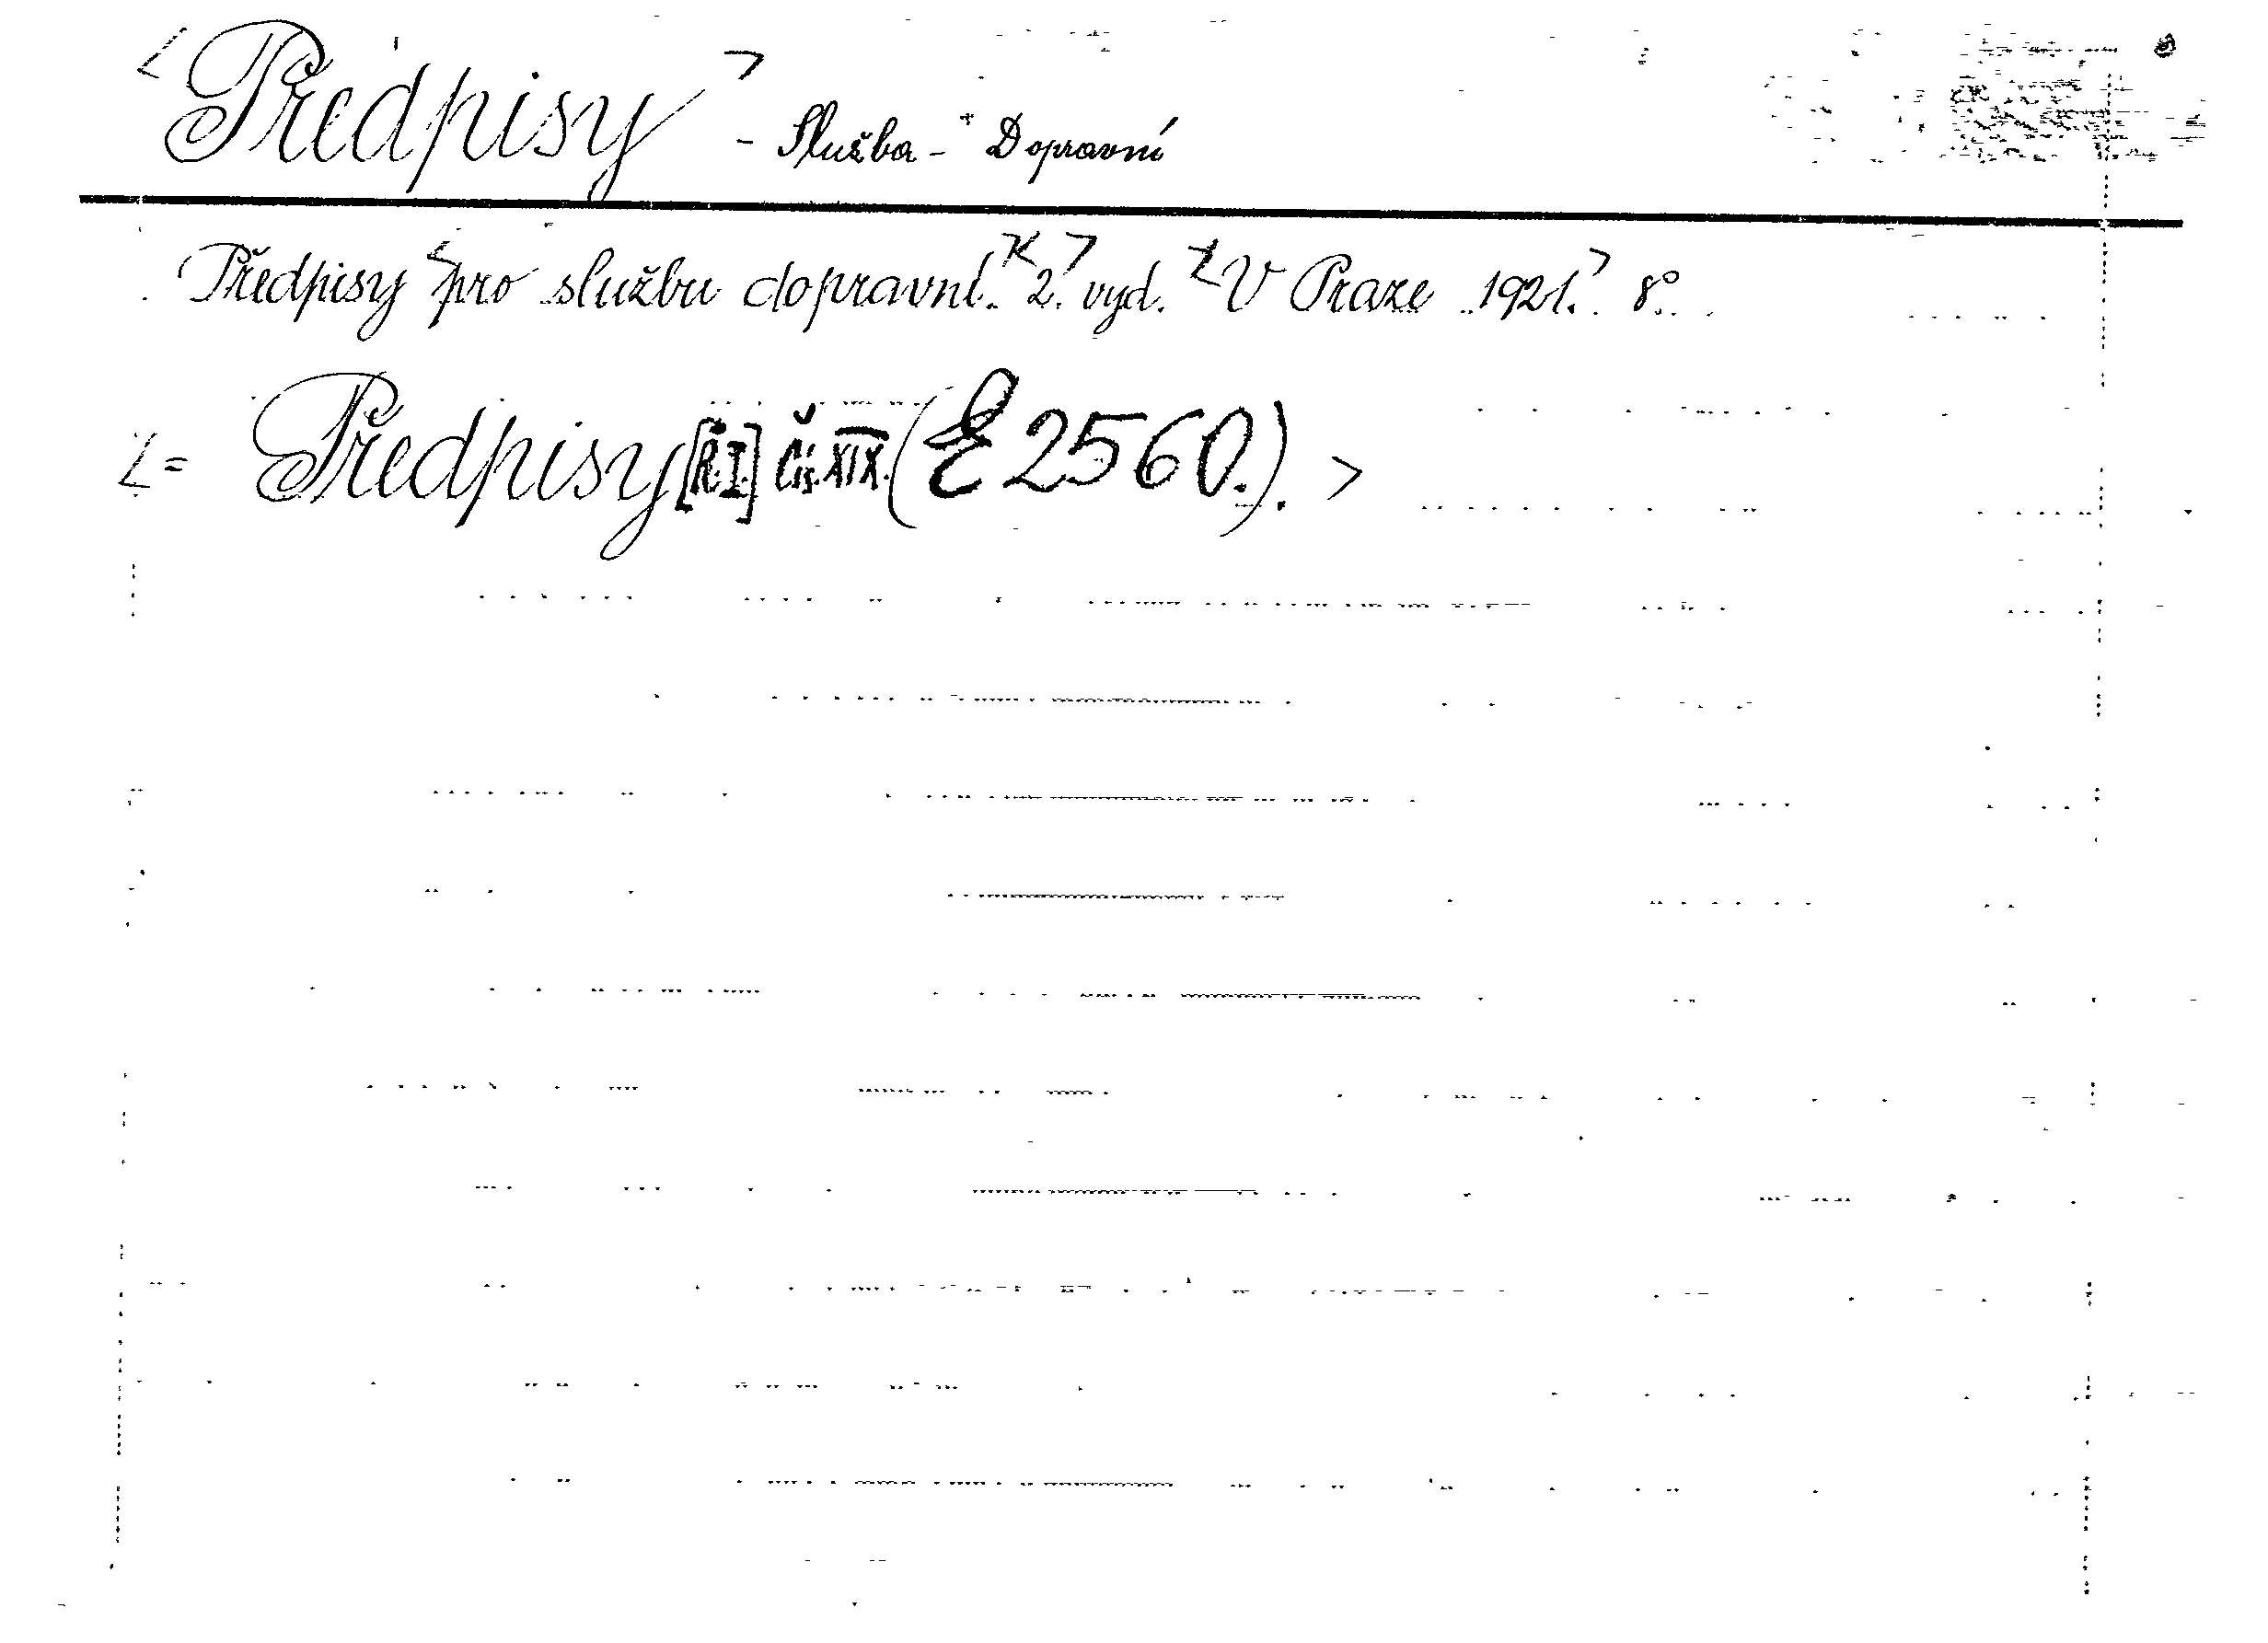 <Předpisy> - Služba - + Dopravní
Předpisy <pro službu dopravní. 2.> vyd. V Praze 1921.> 8°.
<= Předpisy [Ř.I.] Čís. XIX. (E 2560.). >